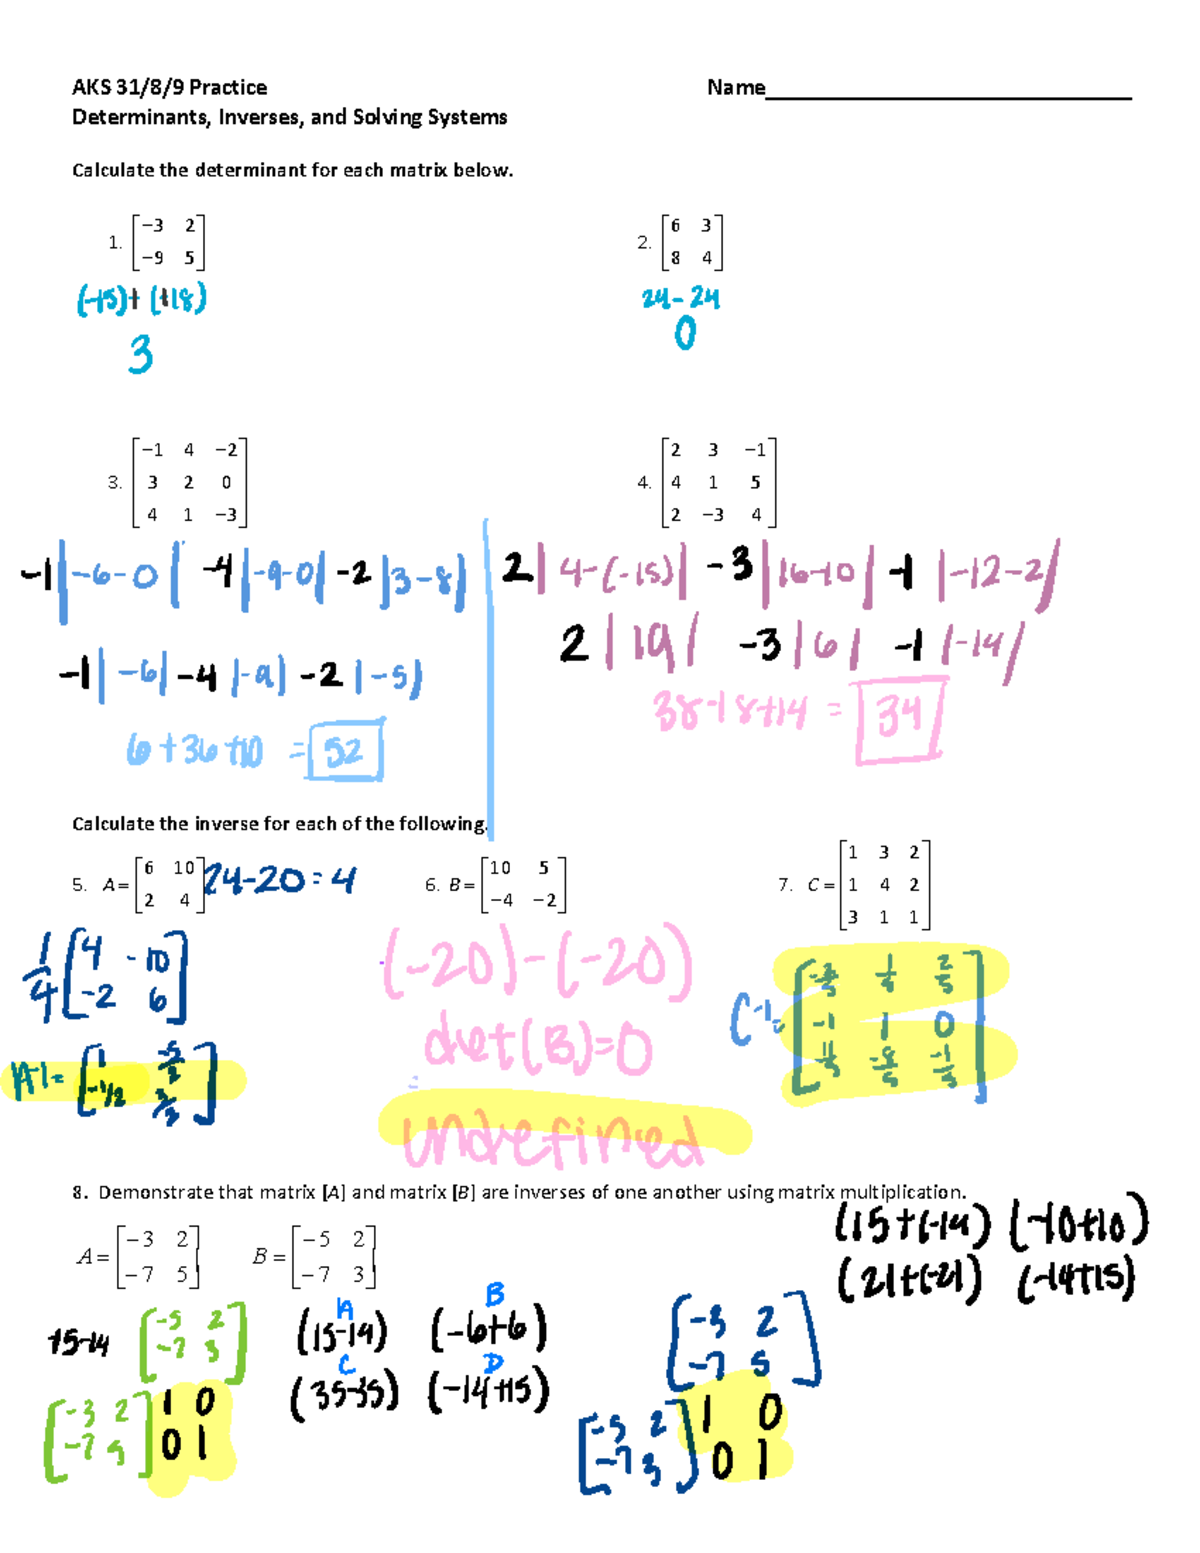 AKS 31/8/9 Practice Name
Determinants, Inverses, and Solving Systems
Calculate the determinant for each matrix below.
1. [−3 2
−9 5]
2. [6 3
8 4]
(-15)+(+18)
3
24-24
0
3. [−1 4 −2
3 2 0
4 1 −3]
4. [2 3 −1
4 1 5
2 −3 4]
-1|-6-0| -4|-9-0| -2|3-8|
-1|-6| -4|-9| -2|-5|
6+36+10 = 52
2|4-(-15)| -3|16-10| -1|-12-2|
2|19| -3|6| -1|-14|
38-18+14 = 34
Calculate the inverse for each of the following.
5. A = [6 10
2 4] 24-20=4
1/4 [4 -10
-2 6]
A-1= [1 -5/2
-1/2 3/2]
6. B = [10 5
−4 −2]
(-20)-(-20)
det(B)=0
=
undefined
7. C = [1 3 2
1 4 2
3 1 1]
C-1= [-2/5 1/5 2/5
-1 1 0
11/5 -8/5 -1/5]
8. Demonstrate that matrix [A] and matrix [B] are inverses of one another using matrix multiplication.
A = [−3 2
−7 5]
B = [−5 2
−7 3]
15-14
[-5 2
-7 3]
[-3 2
-7 5] 1 0
0 1
A B
(15-14) (-6+6)
C D
(35-35) (-14+15)
(15+(-14) (-10+10)
(21+(-21) (-14+15)
[-3 2
-7 5]
[-5 2
-7 3] 1 0
0 1